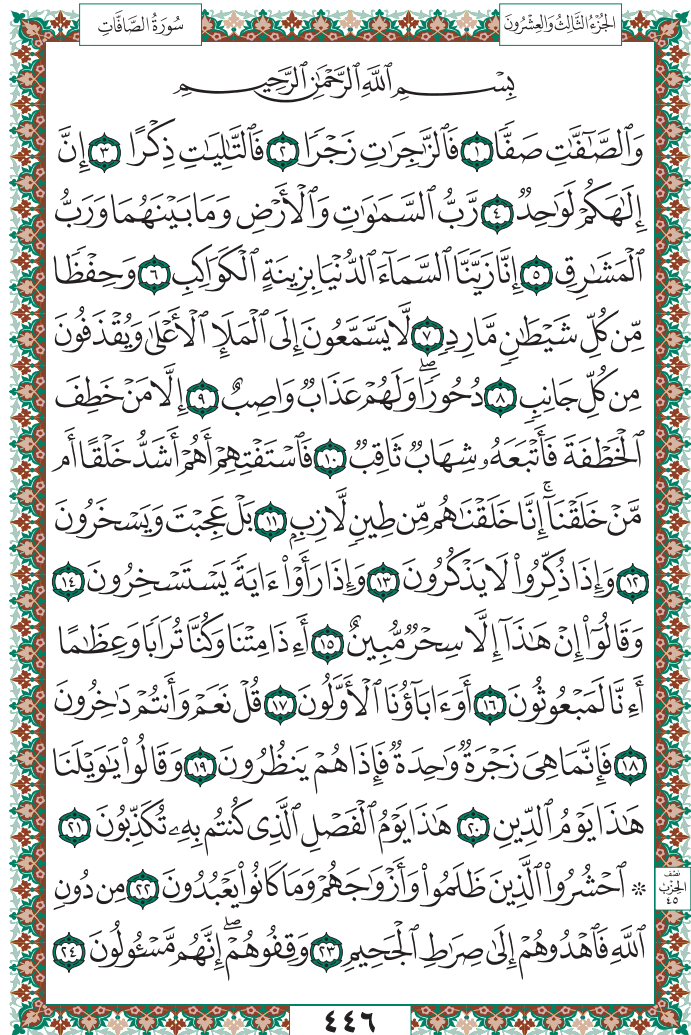 سُورَةُ الصَّافَّاتِ
الجُزْءُ الثَّالِثُ وَالعِشْرُونَ
بِسْمِ ٱللَّهِ ٱلرَّحْمَٰنِ ٱلرَّحِيمِ
وَٱلصَّٰٓفَّٰتِ صَفّٗا ١ فَٱلزَّٰجِرَٰتِ زَجۡرٗا ٢ فَٱلتَّٰلِيَٰتِ ذِكۡرًا ٣ إِنَّ
إِلَٰهَكُمۡ لَوَٰحِدٞ ٤ رَّبُّ ٱلسَّمَٰوَٰتِ وَٱلۡأَرۡضِ وَمَا بَيۡنَهُمَا وَرَبُّ
ٱلۡمَشَٰرِقِ ٥ إِنَّا زَيَّنَّا ٱلسَّمَآءَ ٱلدُّنۡيَا بِزِينَةٍ ٱلۡكَوَاكِبِ ٦ وَحِفۡظٗا
مِّن كُلِّ شَيۡطَٰنٖ مَّارِدٖ ٧ لَّا يَسَّمَّعُونَ إِلَى ٱلۡمَلَإِ ٱلۡأَعۡلَىٰ وَيُقۡذَفُونَ
مِن كُلِّ جَانِبٖ ٨ دُحُورٗاۖ وَلَهُمۡ عَذَابٞ وَاصِبٌ ٩ إِلَّا مَنۡ خَطِفَ
ٱلۡخَطۡفَةَ فَأَتۡبَعَهُۥ شِهَابٞ ثَاقِبٞ ١٠ فَٱسۡتَفۡتِهِمۡ أَهُمۡ أَشَدُّ خَلۡقًا أَم
مَّنۡ خَلَقۡنَآۚ إِنَّا خَلَقۡنَٰهُم مِّن طِينٖ لَّازِبِۭ ١١ بَلۡ عَجِبۡتَ وَيَسۡخَرُونَ
١٢ وَإِذَا ذُكِّرُواْ لَا يَذۡكُرُونَ ١٣ وَإِذَا رَأَوۡاْ ءَايَةٗ يَسۡتَسۡخِرُونَ ١٤
وَقَالُوٓاْ إِنۡ هَٰذَآ إِلَّا سِحۡرٞ مُّبِينٌ ١٥ أَءِذَا مِتۡنَا وَكُنَّا تُرَابٗا وَعِظَٰمًا
أَءِنَّا لَمَبۡعُوثُونَ ١٦ أَوَءَابَآؤُنَا ٱلۡأَوَّلُونَ ١٧ قُلۡ نَعَمۡ وَأَنتُمۡ دَٰخِرُونَ
١٨ فَإِنَّمَا هِيَ زَجۡرَةٞ وَٰحِدَةٞ فَإِذَا هُمۡ يَنظُرُونَ ١٩ وَقَالُواْ يَٰوَيۡلَنَا
هَٰذَا يَوۡمُ ٱلدِّينِ ٢٠ هَٰذَا يَوۡمُ ٱلۡفَصۡلِ ٱلَّذِي كُنتُم بِهِۦ تُكَذِّبُونَ ٢١
۞ ٱحۡشُرُواْ ٱلَّذِينَ ظَلَمُواْ وَأَزۡوَٰجَهُمۡ وَمَا كَانُواْ يَعۡبُدُونَ ٢٢ مِن دُونِ
ٱللَّهِ فَٱهۡدُوهُمۡ إِلَىٰ صِرَٰطِ ٱلۡجَحِيمِ ٢٣ وَقِفُوهُمۡۖ إِنَّهُم مَّسۡـُٔولُونَ ٢٤
نصف
الحزب
٤٥
٤٤٦